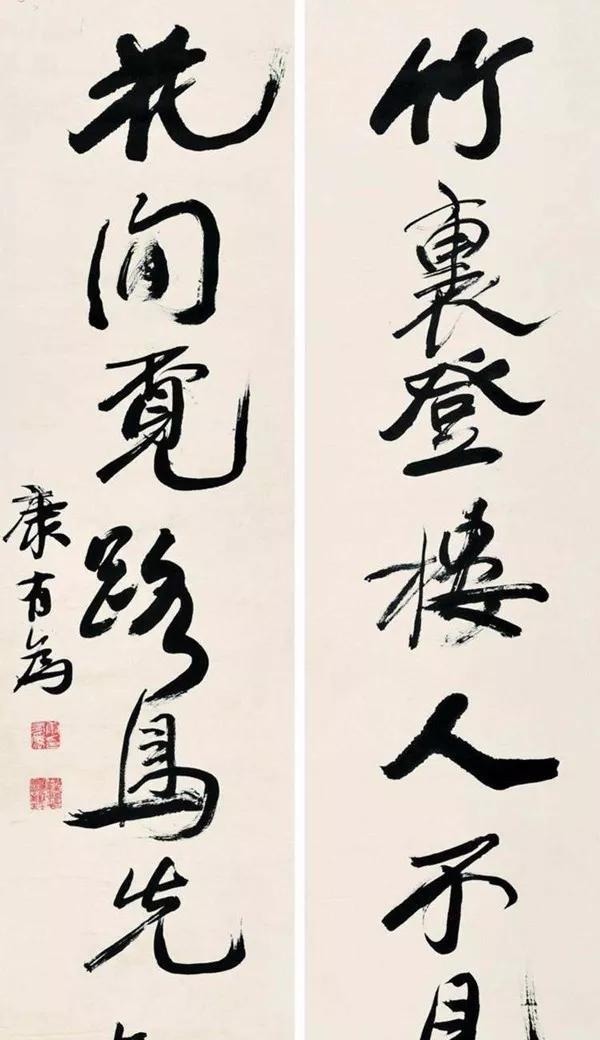 竹裏登樓人不見
花間覓路鳥先
康有為